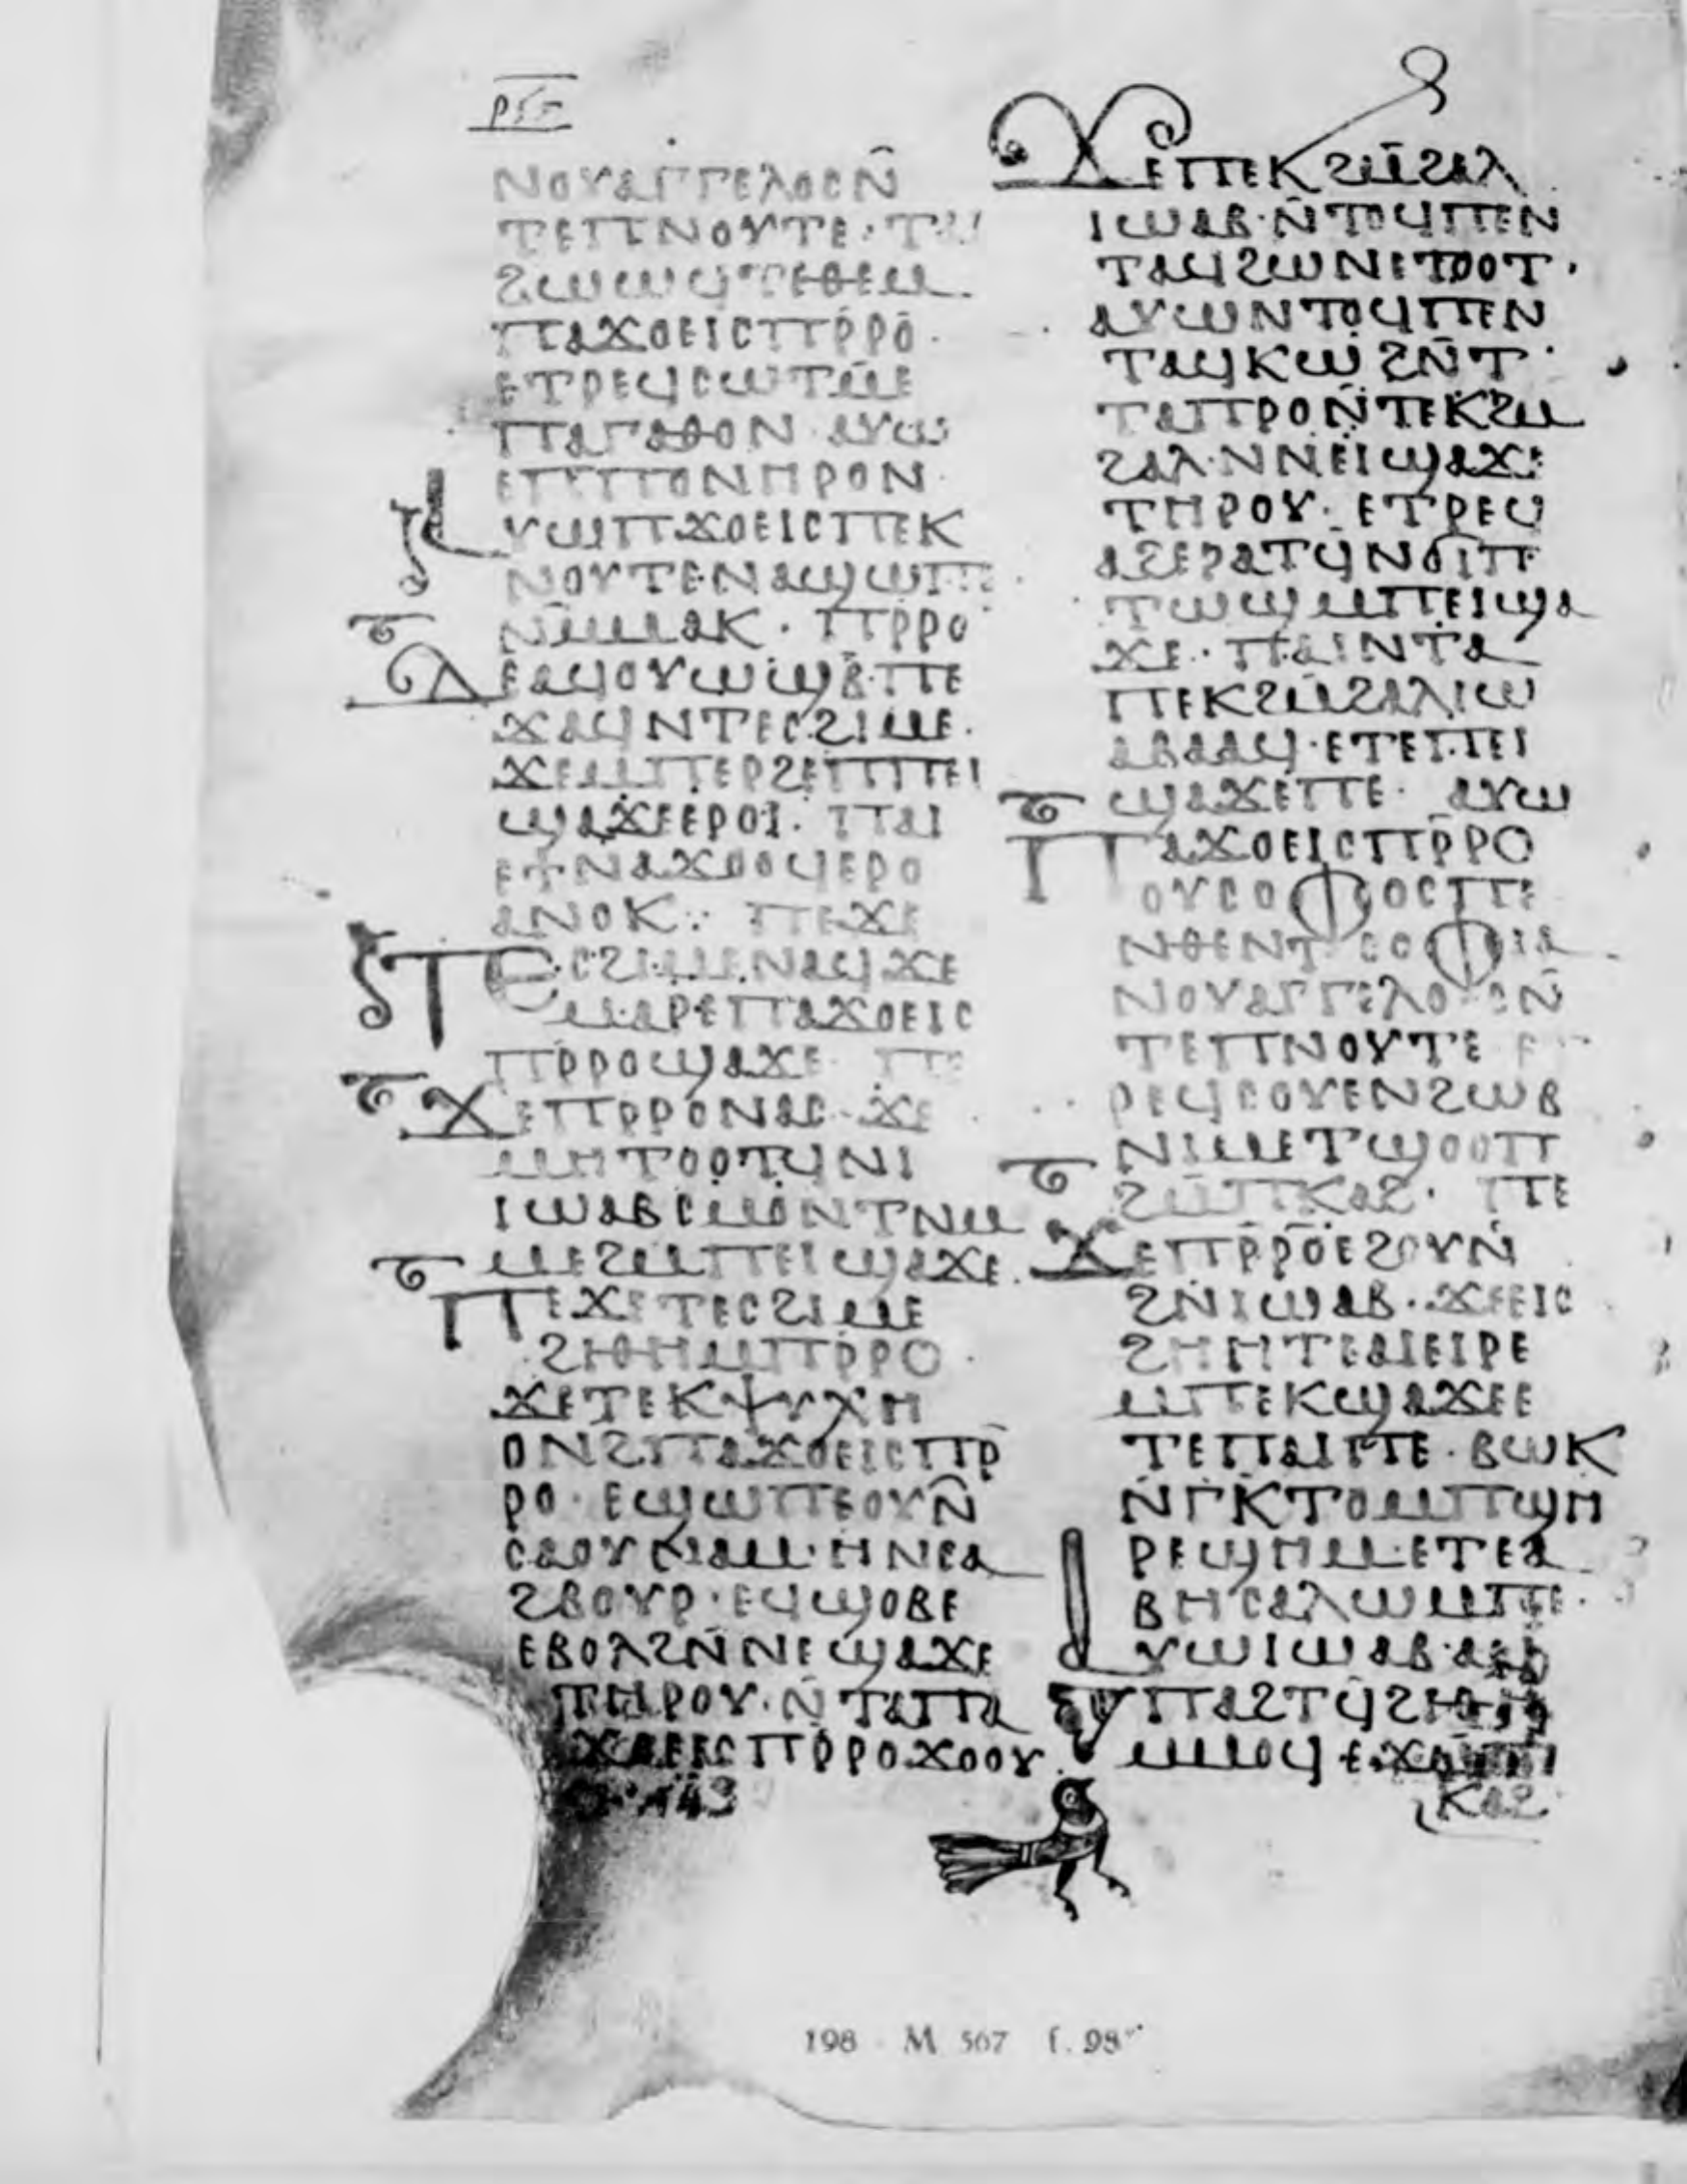 ⲛⲟⲩⲁⲅⲅⲉⲗⲟⲥⲛ̄
ⲧⲉⲡⲛⲟⲩⲧⲉ· ⲧⲁⲓ
ϩⲱⲱϥⲧⲉⲑⲉⲙ
ⲡⲁϫⲟⲉⲓⲥⲡⲣ̄ⲣⲟ̄·
ⲉⲧⲣⲉϥⲥⲱⲧⲙ̄ⲉ
ⲡⲁⲅⲁⲑⲟⲛ ⲁⲩⲱ
ⲉⲡⲡⲟⲛⲏⲣⲟⲛ
ⲁⲩⲱⲡϫⲟⲉⲓⲥⲡⲉⲕ
ⲛⲟⲩⲧⲉ·ⲛⲁϣⲱⲡⲉ
ⲛⲙ̄ⲙⲁⲕ· ⲡⲣ̄ⲣⲟ
ⲇⲉⲁϥⲟⲩⲱϣⲃ·ⲡⲉ
ϫⲁϥⲛⲧⲉⲥϩⲓⲙⲉ·
ϫⲉⲙⲡⲉⲣϩⲉⲡⲡⲉⲓ
ϣⲁϫⲉⲉⲣⲟⲓ· ⲡⲁⲓ
ⲉϯⲛⲁϫⲟⲟϥⲉⲣⲟ
ⲁⲛⲟⲕ: ⲡⲉϫⲉ
ⲧⲉⲥϩⲓⲙⲉⲛⲁϥϫⲉ
ⲙⲁⲣⲉⲡⲁϫⲟⲉⲓⲥ
ⲡⲣ̄ⲣⲟϣⲁϫⲉ ⲡⲉ
ϫⲉⲡⲣ̄ⲣⲟⲛⲁⲥ· ϫⲉ
ⲙⲏⲧⲟⲟⲧϥⲛⲓ
ⲓⲱⲁⲃⲥⲙⲟⲛⲧⲛⲙ
ⲙⲉϩⲙⲡⲉⲓϣⲁϫⲉ·
ⲡⲉϫⲉⲧⲉⲥϩⲓⲙⲉ
ϩⲓⲑⲏⲙⲡⲣ̄ⲣⲟ·
ϫⲉⲧⲉⲕⲯⲩⲭⲏ
ⲟⲛϩⲡⲁϫⲟⲉⲓⲥⲡⲣ̄
ⲣⲟ· ⲉϣⲱⲡⲉⲟⲩⲛ̄
ⲥⲁⲟⲩⲛⲁⲙ·ⲏⲛⲥⲁ
ϩⲃⲟⲩⲣ·ⲉϥϣⲟⲃⲉ
ⲉⲃⲟⲗϩⲛ̄ⲛⲉϣⲁϫⲉ
ⲧⲏⲣⲟⲩ·ⲛ̄ⲧⲁⲡⲁ
ϫⲟⲉⲓⲥⲡⲣ̄ⲣⲟϫⲟⲟⲩ·
143
ϫⲉⲡⲉⲕϩⲙ̄ϩⲁⲗ
ⲓⲱⲁⲃ·ⲛ̄ⲧⲟϥⲡⲉⲛ
ⲧⲁϥϩⲱⲛⲉⲧⲟⲟⲧ·
ⲁⲩⲱⲛⲧⲟϥⲡⲉⲛ
ⲧⲁϥⲕⲱϩⲛ̄ⲧ·
ⲧⲁⲡⲣⲟⲛ̄ⲧⲉⲕϩⲙ
ϩⲁⲗ·ⲛⲛⲉⲓϣⲁϫⲉ
ⲧⲏⲣⲟⲩ·ⲉⲧⲣⲉϥ
ⲁϩⲉⲣⲁⲧϥⲛϭⲓⲡⲉ
ⲧⲱϣⲙⲡⲉⲓϣⲁ
ϫⲉ·ⲡⲁⲓⲛⲧⲁ
ⲡⲉⲕϩⲙ̄ϩⲁⲗⲓⲱ
ⲁⲃⲁⲁϥ·ⲉⲧⲉⲡⲉⲓ
ϣⲁϫⲉⲡⲉ· ⲁⲩⲱ
ⲡⲁϫⲟⲉⲓⲥⲡⲣ̄ⲣⲟ
ⲟⲩⲥⲟⲫⲟⲥⲡⲉ
ⲛⲑⲉⲛⲧⲥⲟⲫⲓⲁ
ⲛⲟⲩⲁⲅⲅⲉⲗⲟⲥⲛ̄
ⲧⲉⲡⲛⲟⲩⲧⲉ ⲉⲧ
ⲣⲉϥⲥⲟⲩⲉⲛϩⲱⲃ
ⲛⲓⲙⲉⲧϣⲟⲟⲡ
ϩⲙ̄ⲡⲕⲁϩ· ⲡⲉ
ϫⲉⲡⲣ̄ⲣⲟ̄ⲉϩⲟⲩⲛ
ϩⲛⲓⲱⲁⲃ·ϫⲉⲉⲓⲥ
ϩⲏⲏⲧⲉⲁⲓⲉⲓⲣⲉ
ⲙⲡⲉⲕϣⲁϫⲉⲉ
ⲧⲉⲡⲁⲓⲡⲉ·ⲃⲱⲕ
ⲛ̄ⲅⲕⲧⲟⲙⲡϣⲏ
ⲣⲉϣⲏⲙ·ⲉⲧⲉⲁ
ⲃⲏⲥⲁⲗⲱⲙⲡⲉ·
ⲁⲩⲱⲓⲱⲁⲃ·ⲁϥ
ⲡⲁϩⲧϥϩⲓϩⲏ
ⲙⲙⲟϥⲉϫⲙ̄ⲡ
ⲕⲁϩ
198 M 567 f. 98ᵛ